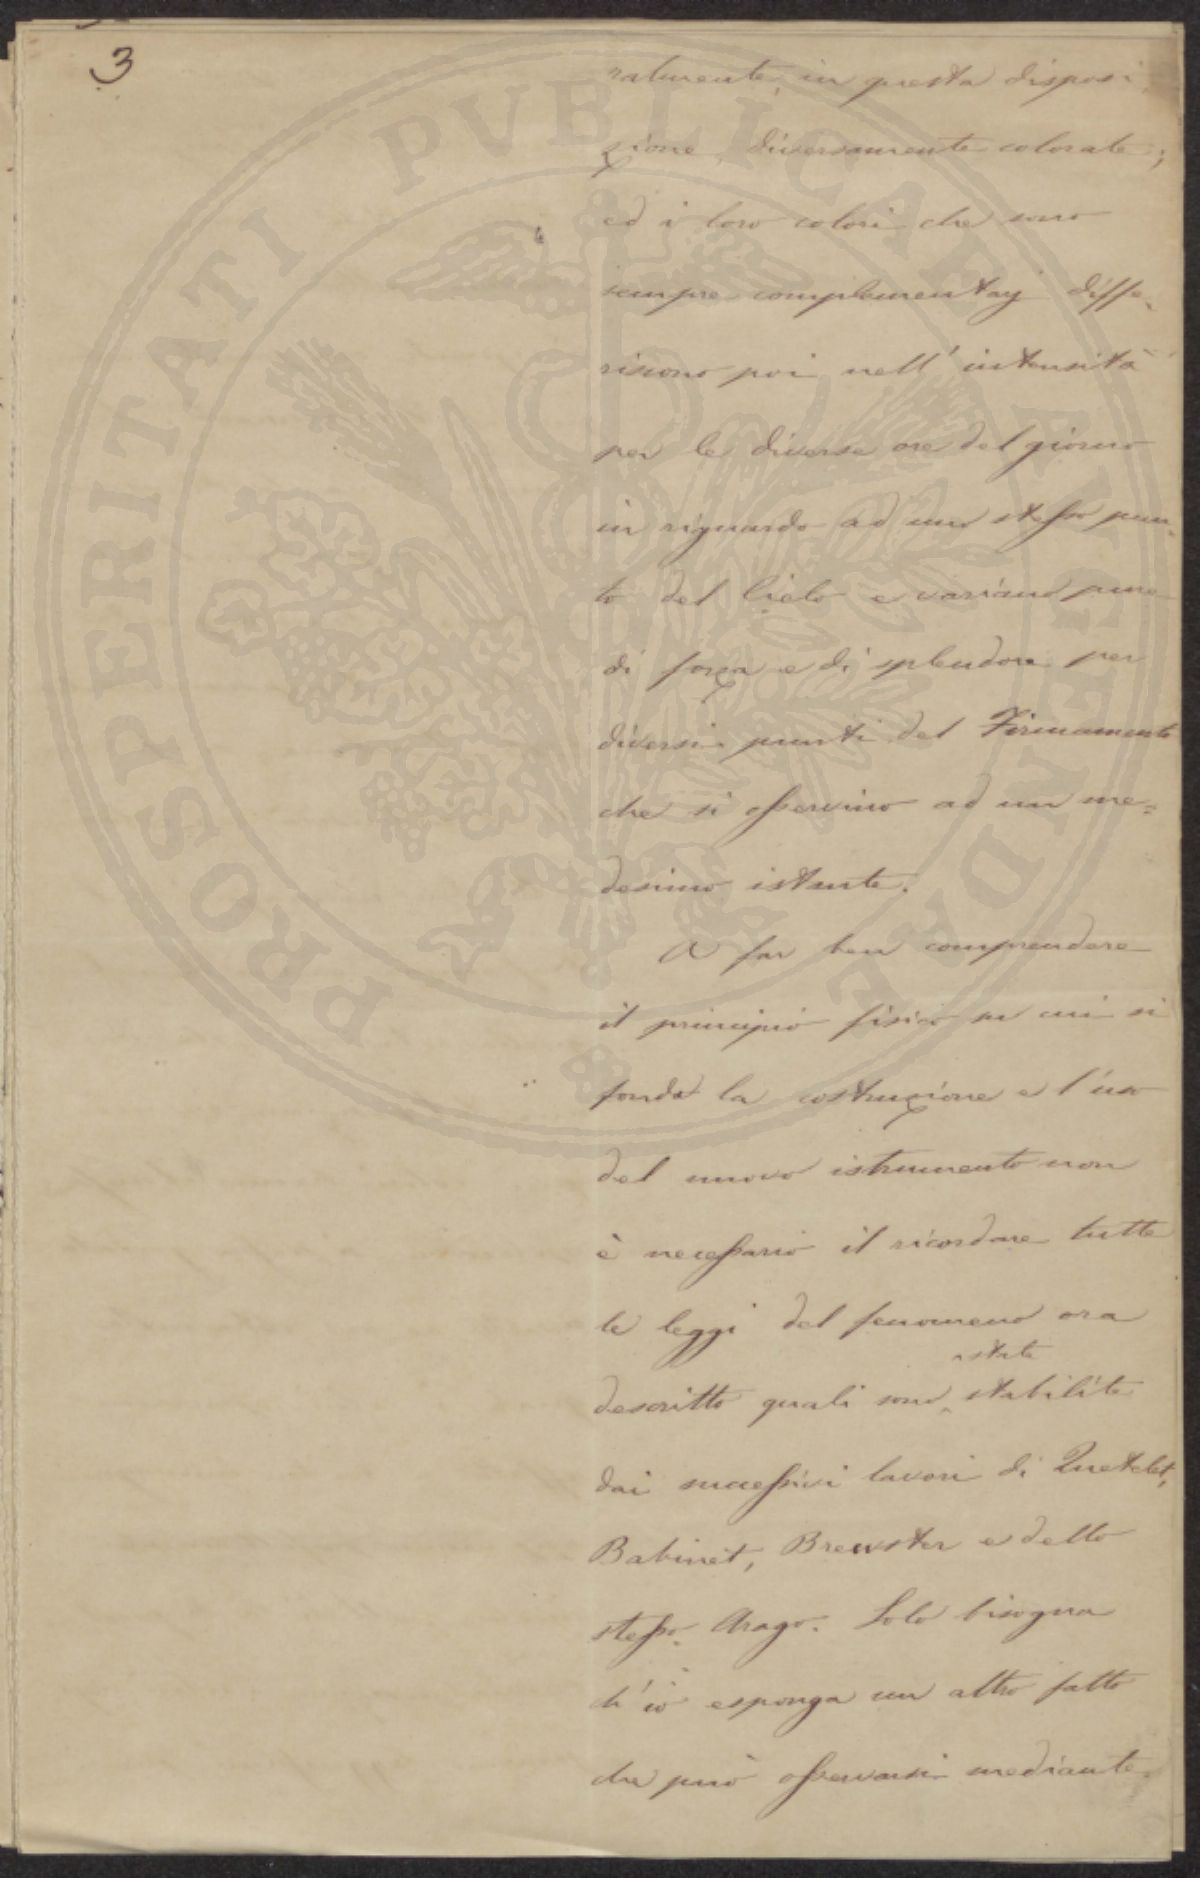 3
ralmente, in questa disposi
zione, diversamente colorate;
ed i loro colori che sono
sempre complementarj diffe-
riscono poi nell' intensità
per le diverse ore del giorno
in riguardo ad uno stesso pun-
to del Cielo e variano pure
di forza e di splendore per
diversi punti del Firmamento
che si osservino ad un me-
desimo istante.
A far ben comprendere
il principio fisico su cui si
fonda la costruzione e l'uso
del nuovo istrumento non
è necessario il ricordare tutte
le leggi del fenomeno ora
state
descritto quali sono stabilite
dai successivi lavori di Quetelet,
Babinet, Brewster e dello
stesso Arago. Solo bisogna
ch'io esponga un altro fatto
che può osservarsi mediante
PROSPERITATI PVBLICAE AVGENDAE